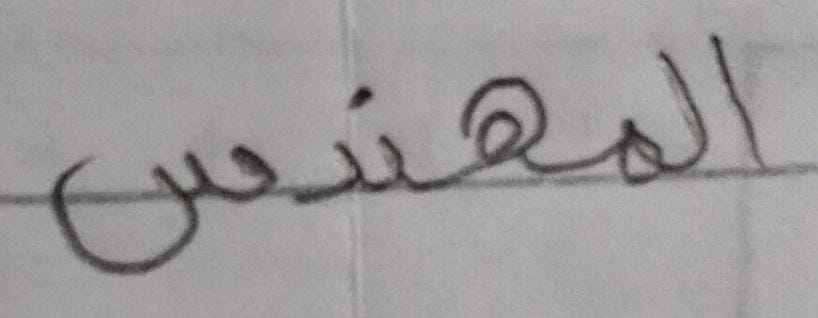 المهندس